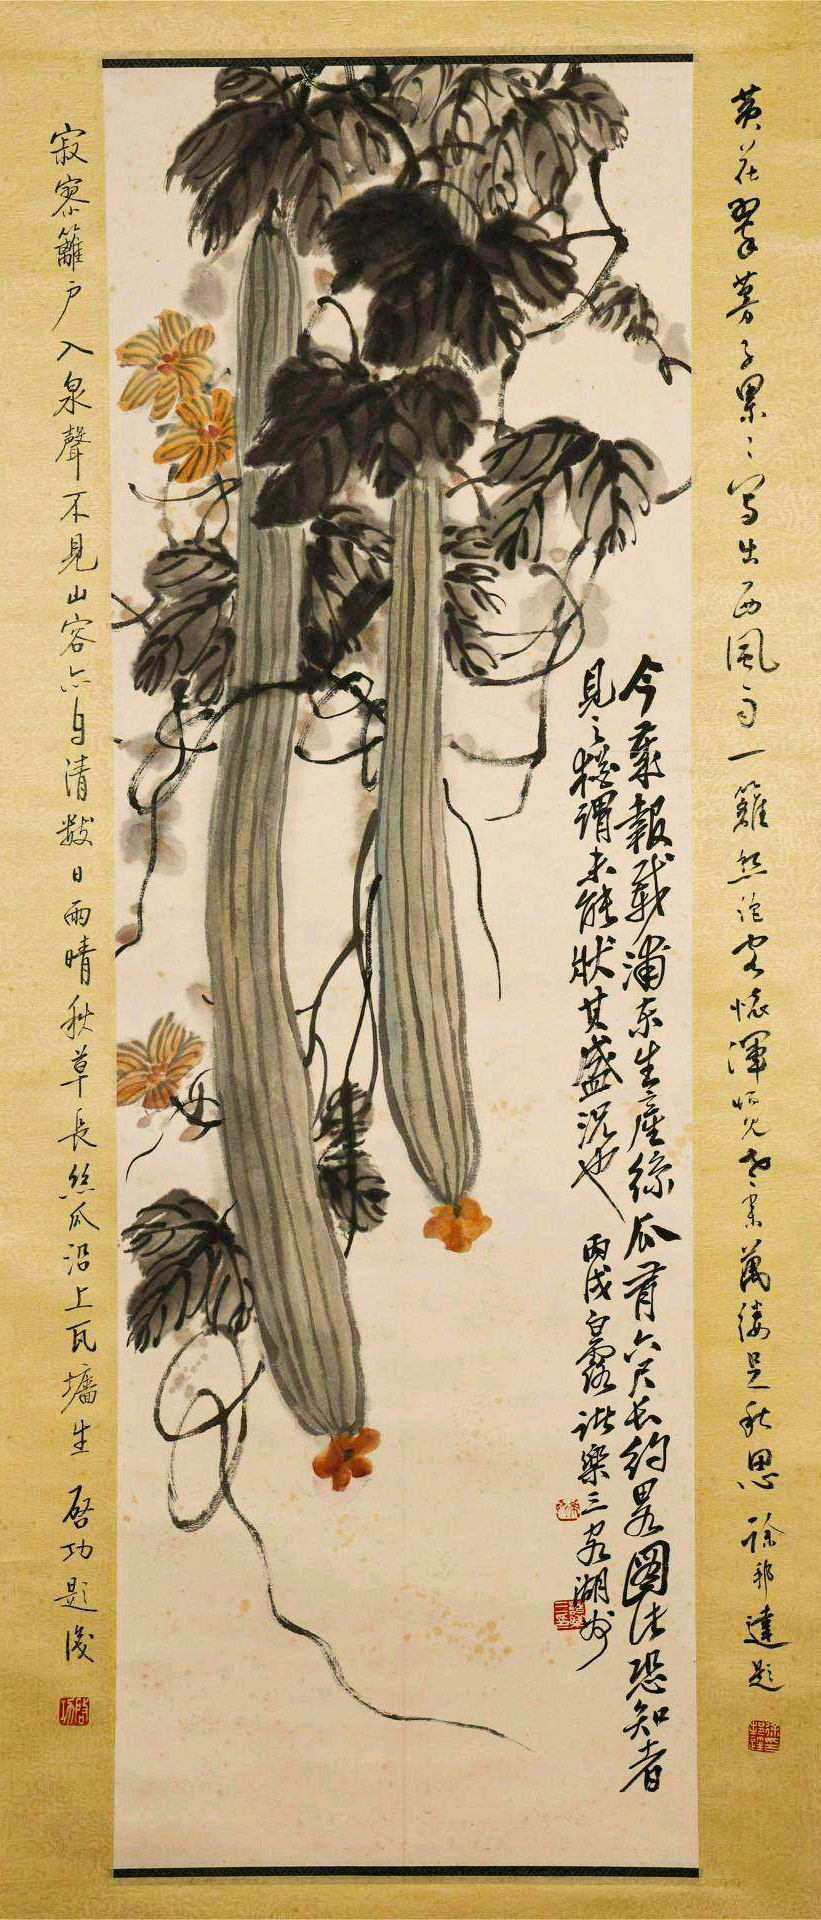 黃花翠蔓子累〻寫出西風雨一籬 客懷渾 萬縷是秋思 徐邦達題
今歲報載浦東生產絲瓜有六尺長約畧圖此恐知者
見之猶謂未能狀其盛況也 丙戌白露諸樂三客湖
寂寥籬戶入泉聲不見山容亦自清數日雨晴秋草長絲瓜沿上瓦墻生 啓功題後
啓功